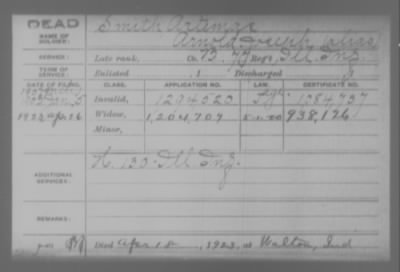 DEAD
NAME OF SOLDIER: Smith Artemas
Arnold Joseph (alias)
SERVICE: Late rank, Co. B. 77 Reg't Ill Inf.
TERM OF SERVICE: Enlisted , 1 Discharged , 1
DATE OF FILING. CLASS. APPLICATION NO. LAW. CERTIFICATE NO.
Invalid, 1294520 1084737
1923 Apr. 26 Widow, 1,204,707 938,126
Minor,
ADDITIONAL SERVICES: K. 130. Ill Inf.
REMARKS:
Died Apr 1 , 1923, at Walton, Ind